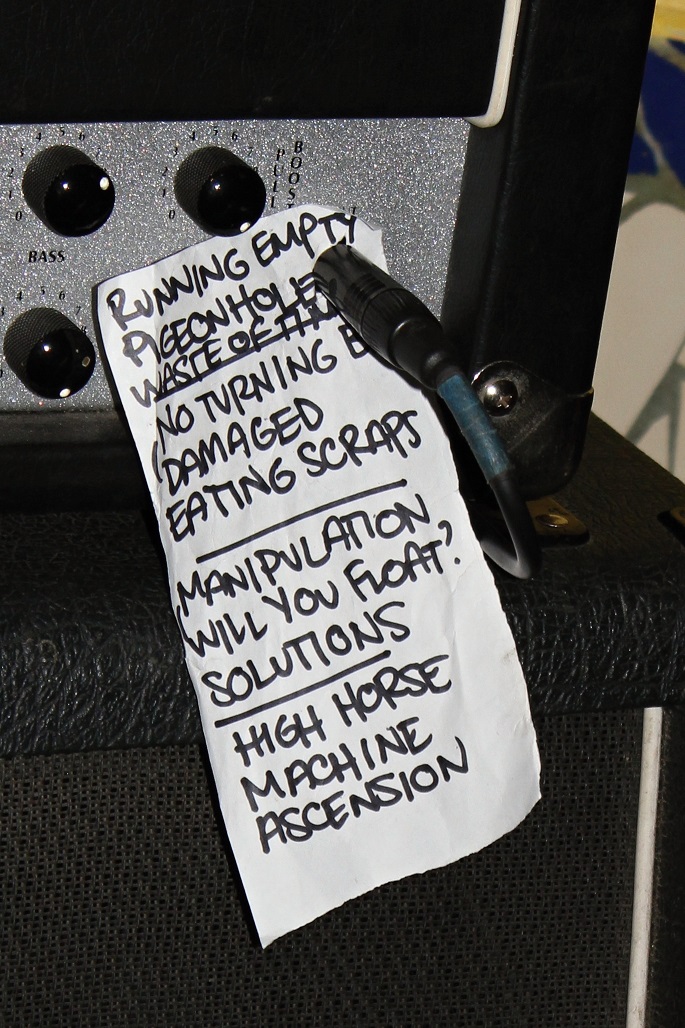 4 5 6
3
2
1
0
4 5 6
3 7
2
1
0
PULL
BOOST
BASS
4 5 6
7
RUNNING EMPTY
PIGEONHOLE
WASTE OF
NO TURNING
DAMAGED
EATING SCRAPS
MANIPULATION
WILL YOU FLOAT?
SOLUTIONS
HIGH HORSE
MACHINE
ASCENSION